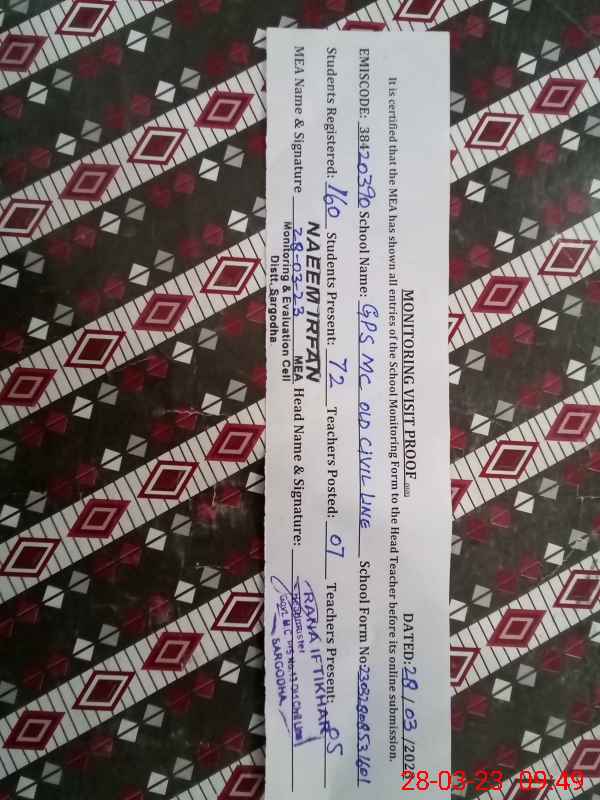 MONITORING VISIT PROOF DATED: 28/03/202
It is certified that the MEA has shown all entries of the School Monitoring Form to the Head Teacher before its online submission.
EMISCODE: 38420390 School Name: GPS MC OLD CIVIL LINE School Form No:
Students Registered: 160 Students Present: 72 Teachers Posted: 07 Teachers Present: 05
NAEEM IRFAN
MEA Name & Signature 28-03-23 MEA Head Name & Signature: RANA IFTIKHAR
Monitoring & Evaluation Cell
Distt. Sargodha
SARGODHA
28-03-23 09:49